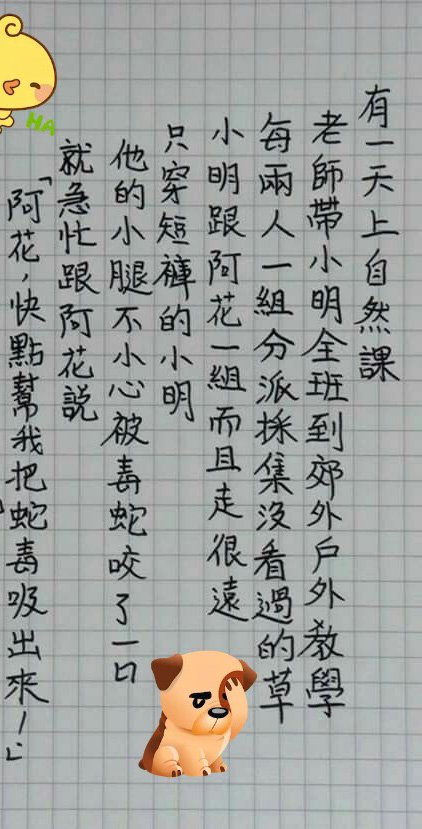 有一天上自然課
老師帶小明全班到郊外戶外教學
每兩人一組分派採集沒看過的草
小明跟阿花一組而且走很遠
只穿短褲的小明
他的小腿不小心被毒蛇咬了一口
就急忙跟阿花說
「阿花,快點幫我把蛇毒吸出來!」
HA